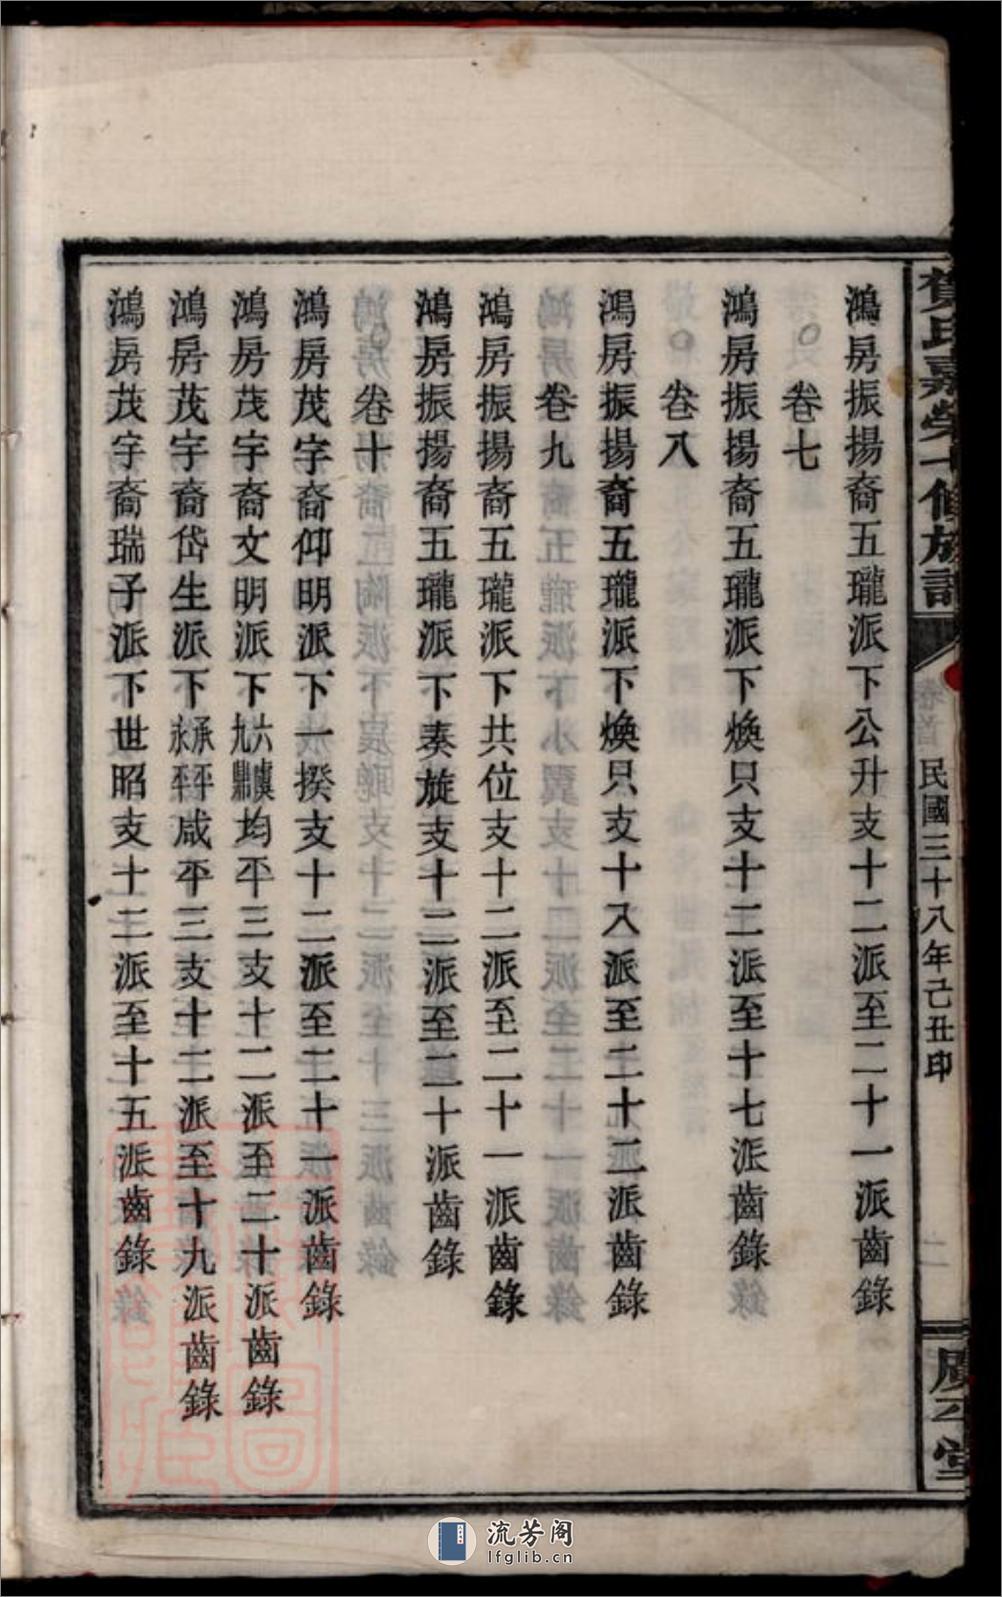 鴻房振揚裔五瓏派下公升支十二派至二十一派齒錄
○卷七
鴻房振揚裔五瓏派下煥只支十二派至十七派齒錄
○卷八
鴻房振揚裔五瓏派下煥只支十八派至二十二派齒錄
卷九
鴻房振揚裔五瓏派下共位支十二派至二十一派齒錄
鴻房振揚裔五瓏派下奏旋支十二派至二十派齒錄
○卷十
鴻房茂宇裔仰明派下一揆支十二派至二十一派齒錄
鴻房茂宇裔文明派下六虞九鼎均平三支十二派至二十派齒錄
鴻房茂宇裔岱生派下承平永平咸平三支十二派至十九派齒錄
鴻房茂宇裔瑞子派下世昭支十二派至十五派齒錄
氏嘉榮七修族譜
卷首
民國三十八年己丑印
二
堂
流芳阁
lfglib.cn